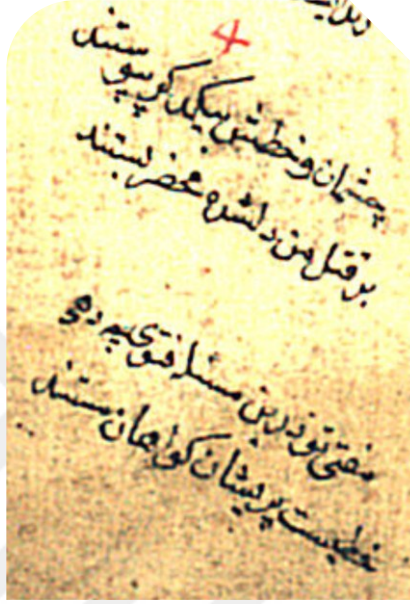 چشمان و خطش بیکدیگر پیوستند
بر قتل من دلشده محضر بستند
مفتی تو درین مسئله فتوی بچه دهی
خطیست پریشان گواهان مستند